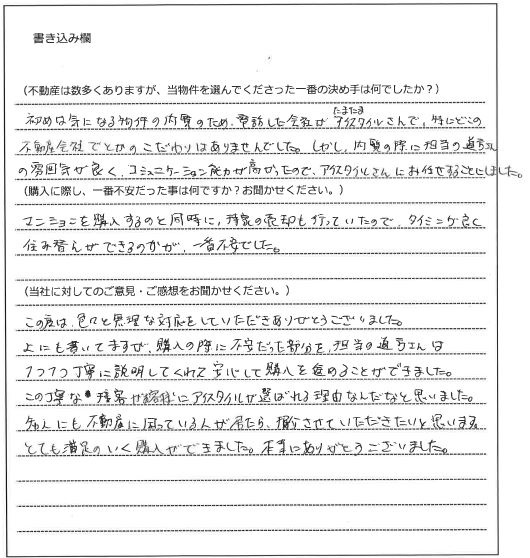 書き込み欄
(不動産は数多くありますが、当物件を選んでくださった一番の決め手は何でしたか?)
初めは気になる物件の内覧のため、電話した会社がたまたまアイスタイルさんで、特にどこの
不動産会社でとかのこだわりはありませんでした。しかし、内覧の際に担当の道言さん
の雰囲気が良く、コミュニケーション能力が高かったので、アイスタイルさんにお任せすることにしました。
(購入に際し、一番不安だった事は何ですか?お聞かせください。)
マンションを購入するのと同時に、持家の売却も行っていたので、タイミング良く
住み替えができるのかが、一番不安でした。
(当社に対してのご意見・ご感想をお聞かせください。)
この度は、色々と無理な対応をしていただきありがとうございました。
上にも書いてますが、購入の際に不安だった部分を、担当の道言さんは
1つ1つ丁寧に説明してくれて安心して購入を進めることができました。
この丁寧な接客がお客様にアイスタイルが選ばれる理由なんだなと思いました。
知人にも不動産に困っている人が居たら、紹介させていただきたいと思います。
とても満足のいく購入ができました。本当にありがとうございました。